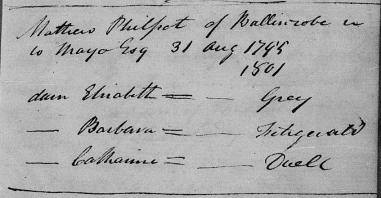 Mathew Philpot of Ballinrobe in
Co Mayo Esq 31 Aug 1795
1801
daur Elizabeth = — Grey
— Barbara = — Fitzgerald
— Catharine = —